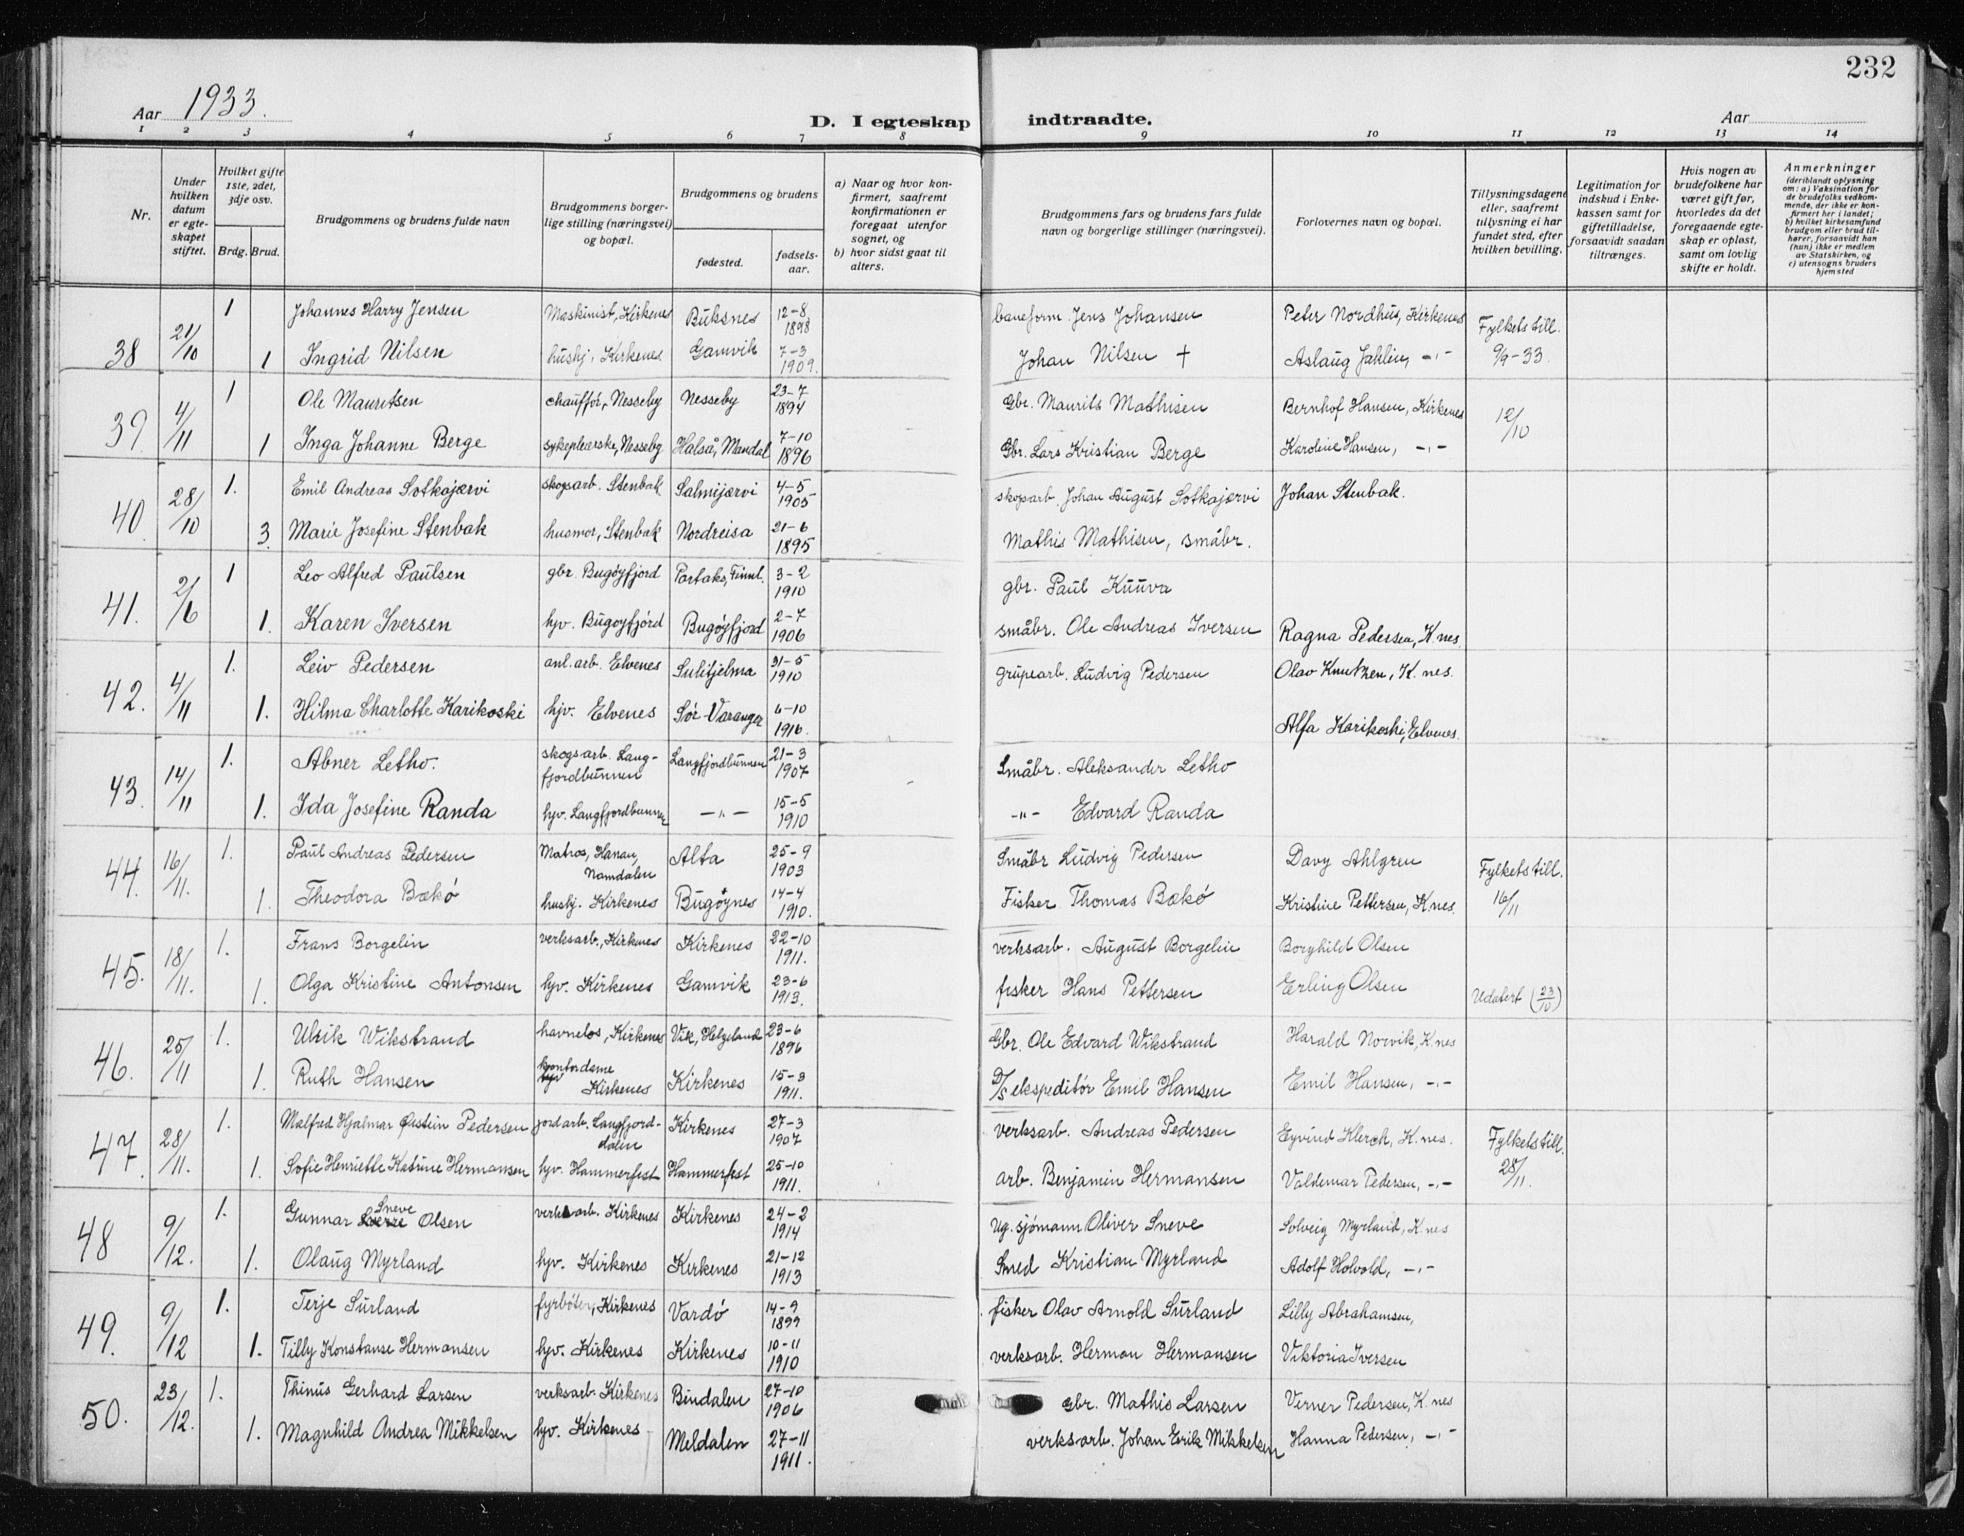 232
Aar 1933.
D. I egteskap indtraadte.
Aar
1 2 3 4 5 6 7 8 9 10 11 12 13 14
Nr.
Under hvilken datum er egteskapet stiftet.
Hvilket gifte 1ste, 2det, 3dje osv.
Brdg. Brud.
Brudgommens og brudens fulde navn
Brudgommens borgerlige stilling (næringsvei) og bopæl.
Brudgommens og brudens
fødested.
fødselsaar.
a) Naar og hvor konfirmert, saafremt konfirmationen er foregaat utenfor sognet, og
b) hvor sidst gaat til alters.
Brudgommens fars og brudens fars fulde navn og borgerlige stillinger (næringsvei).
Forlovernes navn og bopæl.
Tillysningsdagene eller, saafremt tillysning ei har fundet sted, efter hvilken bevilling.
Legitimation for indskud i Enkekassen samt for giftetilladelse, forsaavidt saadan tiltrænges.
Hvis nogen av brudefolkene har været gift før, hvorledes da det foregaaende egteskap er opløst, samt om lovlig skifte er holdt.
Anmerkninger
(deriblandt oplysning om: a) Vaksination for de brudefolks vedkommende, der ikke er konfirmert her i landet; b) hvilket kirkesamfund brudgom eller brud tilhører, forsaavidt han (hun) ikke er medlem av Statskirken, og c) utensogns bruders hjemsted
1 Johannes Harry Jensen Maskinist, Kirkenes Buksnes 12-8 1898 baneform. Jens Johansen Peter Nordhus, Kirkenes Fylkets till.
38 21/10 1 Ingrid Nilsen hushj. Kirkenes Gamvik 7-3 1909. Johan Nilsen † Aslaug Jahlin, -"- 9/9-33.
1 Ole Mauritsen chauffør, Nesseby Nesseby 23-7 1894 Gbr. Maurits Mathisen Bernhof Hansen, Kirkenes 12/10
39 4/11 1 Inga Johanne Berge sykepleierske, Nesseby Halså, Mandal 7-10 1896 Gbr. Lars Kristian Berge Karoline Hansen, -"-
1. Emil Andreas Sotkajærvi skogsarb. Stenbak Salmijærvi 4-5 1905 skogsarb. Johan August Sotkajærvi Johan Stenbak.
40 28/10 3 Marie Josefine Stenbak husmor, Stenbak Nordreisa 21-6 1895 Mathis Mathisen, småbr.
1 Leo Alfred Paulsen gbr. Bugøyfjord Portaks, Finnl. 3-2 1910 gbr. Paul Kuuva
41. 2/6 1. Karen Iversen hjv. Bugøyfjord Bugøyfjord 2-7 1906 småbr. Ole Andreas Iversen Ragna Pedersen, K.nes.
1. Leiv Pedersen anl.arb. Elvenes Sulitjelma 31-5 1910 grupearb. Ludvig Pedersen Olav Knutzen, K.nes.
42. 4/11 1. Hilma Charlotte Karikoski hjv. Elvenes Sør-Varanger 6-10 1916. Alfa Karikoski, Elvenes.
1. Abner Letho. skogsarb. Langfjordbunnen Langfjordbunnen 21-3 1907 Småbr. Aleksander Letho
43. 14/11 1. Ida Josefine Randa hjv. Langfjordbunnen -"- 15-5 1910 -"- Edvard Randa
1. Paul Andreas Pedersen Matros, Namdalen Alta 25-9 1903 Småbr Ludvig Pedersen Davy Ahlgren Fylkets till.
44. 16/11. 1. Theodora Bækø hushj. Kirkenes Bugøynes 14-4 1910. Fisker Thomas Bækø Kristine Pettersen, K.nes. 16/11
1. Frans Borgelin verksarb., Kirkenes Kirkenes 22-10 1911. verksarb. August Borgelin Borghild Olsen
45. 18/11. 1. Olga Kristine Antonsen hjv. Kirkenes Gamvik 23-6 1913. fisker Hans Pettersen Erling Olsen Udatert (23/10)
1. Ulrik Wikstrand havnelos, Kirkenes Vik, Helgeland 23-6 1896 Gbr. Ole Edvard Wikstrand Harald Norvik, K.nes
46. 25/11 1. Ruth Hansen kontordame Kirkenes Kirkenes 15-3 1911. D/S ekspeditør Emil Hansen Emil Hansen, -"-
1. Malfred Hjalmar Østein Pedersen jordarb. Langfjorddalen Kirkenes 27-3 1907 verksarb. Andreas Pedersen Eyvind Klerck, K.nes. Fylkets till.
47. 28/11. 1. Sofie Henriette Katrine Hermansen hjv. Hammerfest Hammerfest 25-10 1911. arb. Benjamin Hermansen Valdemar Pedersen, -"- 28/11.
1. Gunnar Sneve Olsen verksarb. Kirkenes Kirkenes 24-2 1914 ug. sjømann Oliver Sneve Solveig Myrland, K.nes
48 9/12. 1. Olaug Myrland hjv. Kirkenes Kirkenes 21-12 1913 Smed Kristian Myrland Adolf Holvold, -"-
1. Terje Surland fyrbøter, Kirkenes Vardø 14-9 1899 fisker Olav Arnold Surland Lilly Abrahamsen,
49. 9/12 1. Tilly Konstanse Hermansen hjv. Kirkenes Kirkenes 10-11 1910 verksarb. Herman Hermansen Viktoria Iversen
1. Thinus Gerhard Larsen verksarb Kirkenes Bindalen 27-10 1906 gbr. Mathis Larsen Verner Pedersen, K.nes
50. 23/12. 1. Magnhild Andrea Mikkelsen hjv. Kirkenes Meldalen 27-11 1911. verksarb. Johan Erik Mikkelsen Hanna Pedersen, -"-